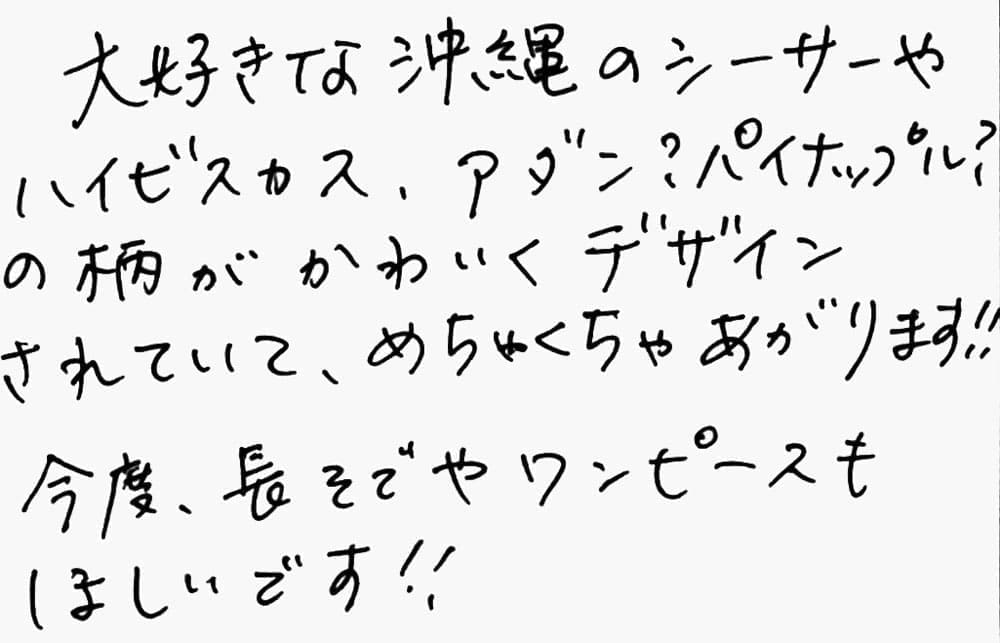 大好きな沖縄のシーサーや
ハイビスカス、アダン?パイナップル?
の柄がかわいくデザイン
されていて、めちゃくちゃあがります!!
今度、長そでやワンピースも
ほしいです!!